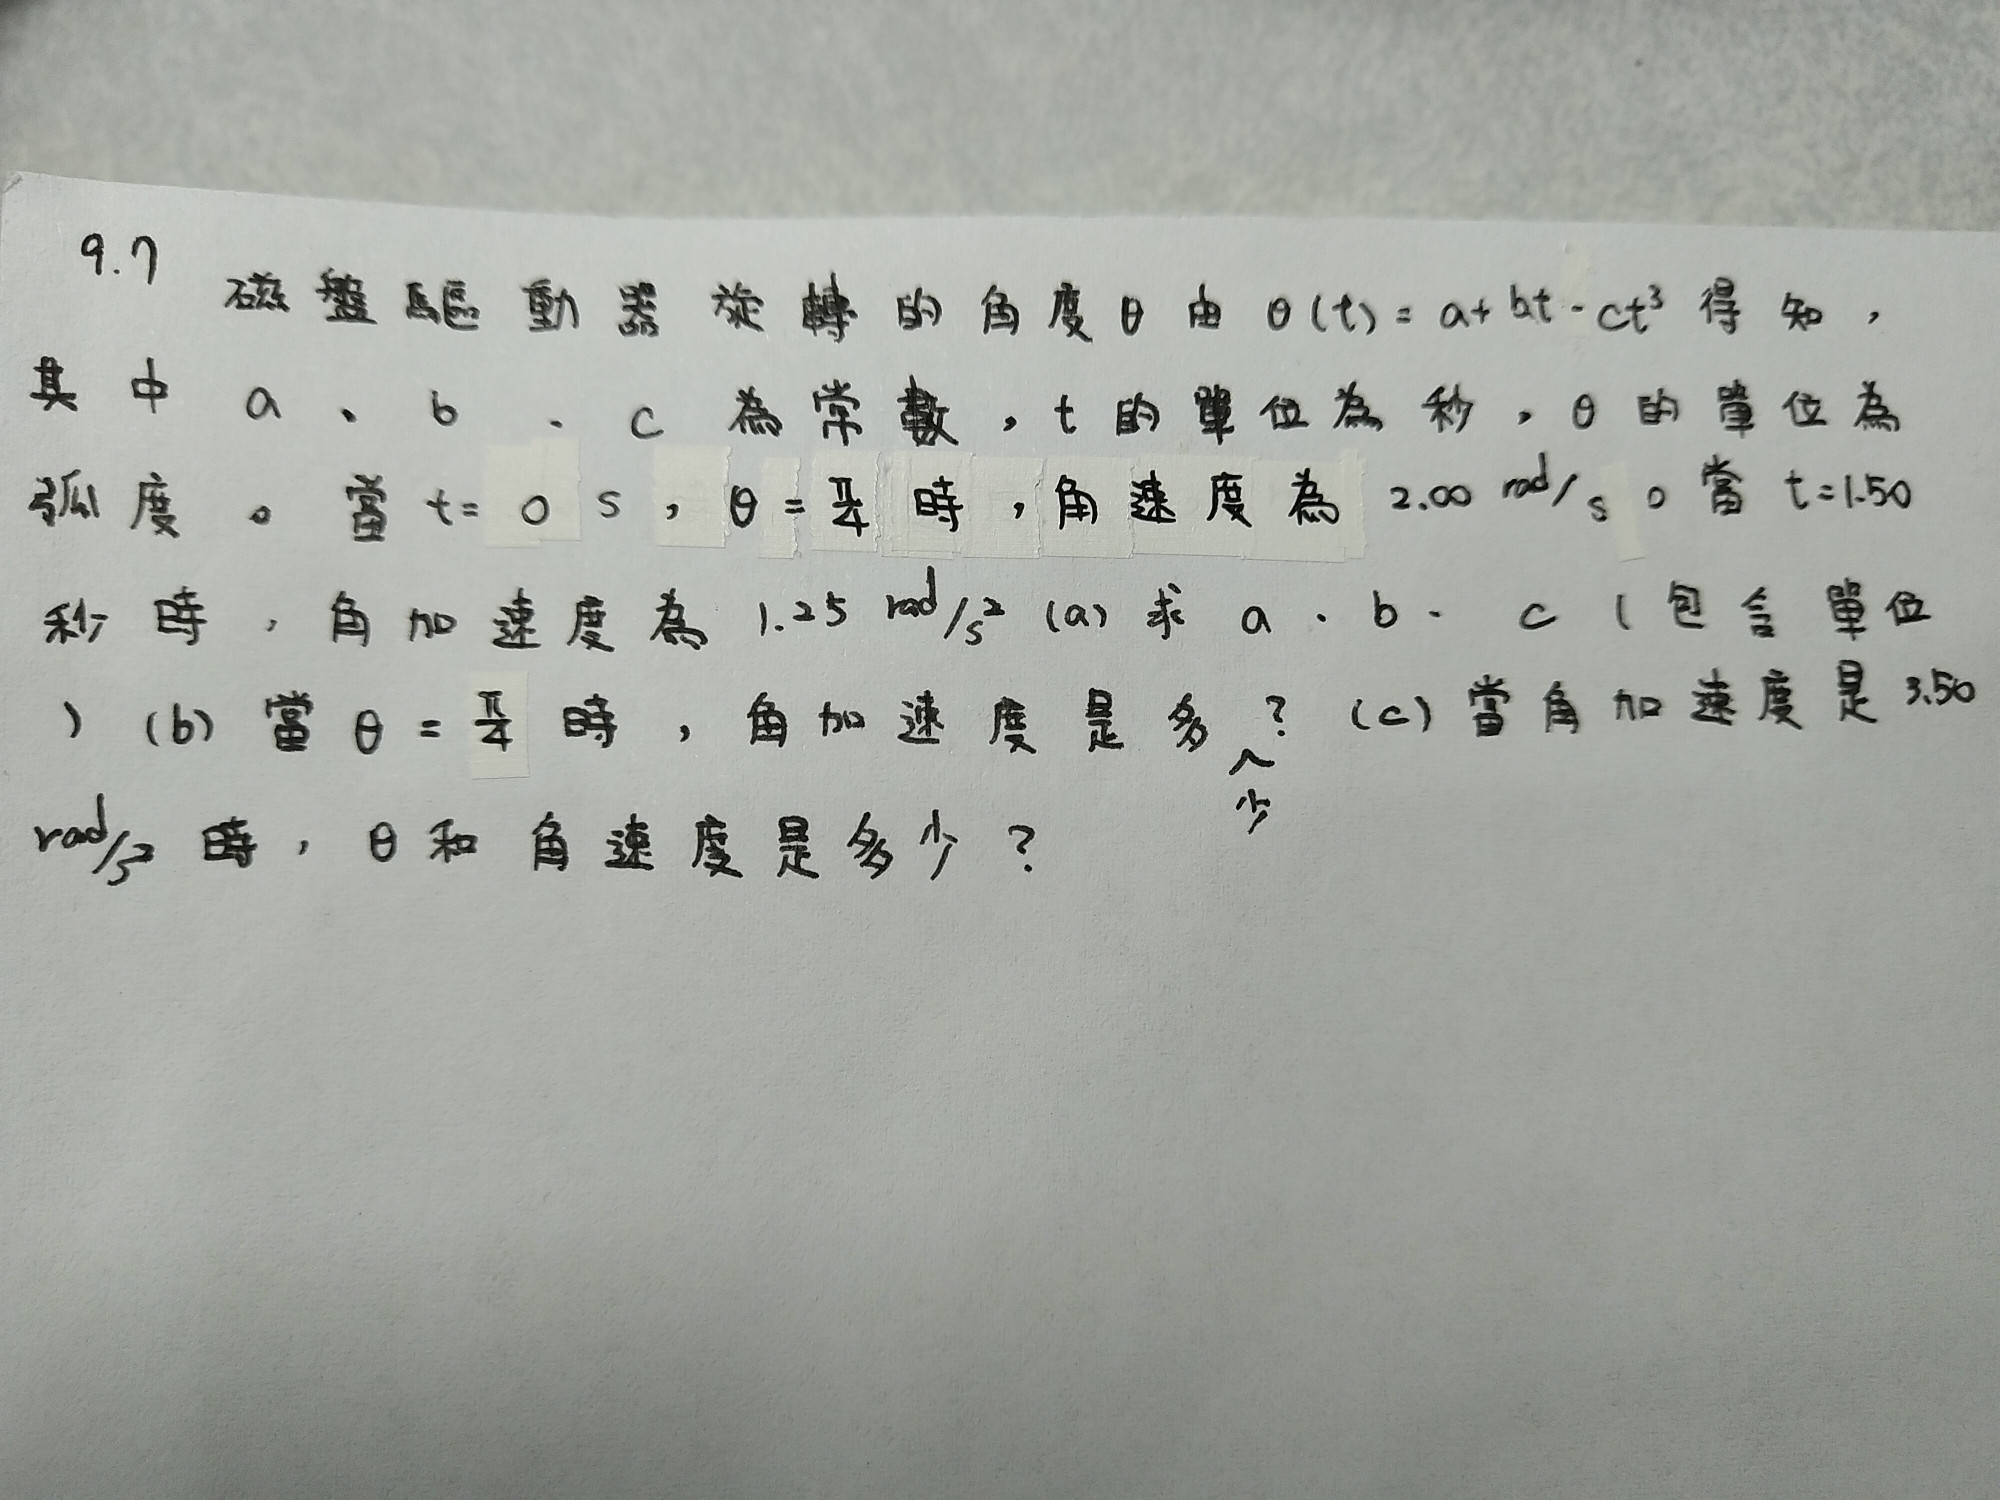 9.7
磁盤驅動器旋轉的角度θ由θ(t)=a+bt-ct³得知，
其中a、b、c為常數，t的單位為秒，θ的單位為
弧度。當t=0s，θ=π/4時，角速度為2.00 rad/s。當t=1.50
秒時，角加速度為1.25 rad/s² (a)求a、b、c(包含單位
) (b)當θ=π/4時，角加速度是多少？(c)當角加速度是3.50
rad/s²時，θ和角速度是多少？